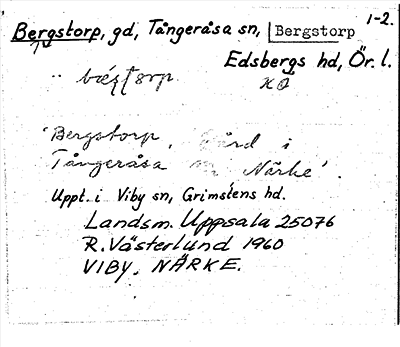 1-2.
Bergstorp, gd, Tångeråsa sn, Bergstorp
Edsbergs hd, Ör. l.
'Bergstorp, gård i
Tångeråsa Närke'.
Uppt. i Viby sn, Grimstens hd.
Landsm. Uppsala 25076
R. Västerlund 1960
VIBY, NÄRKE.